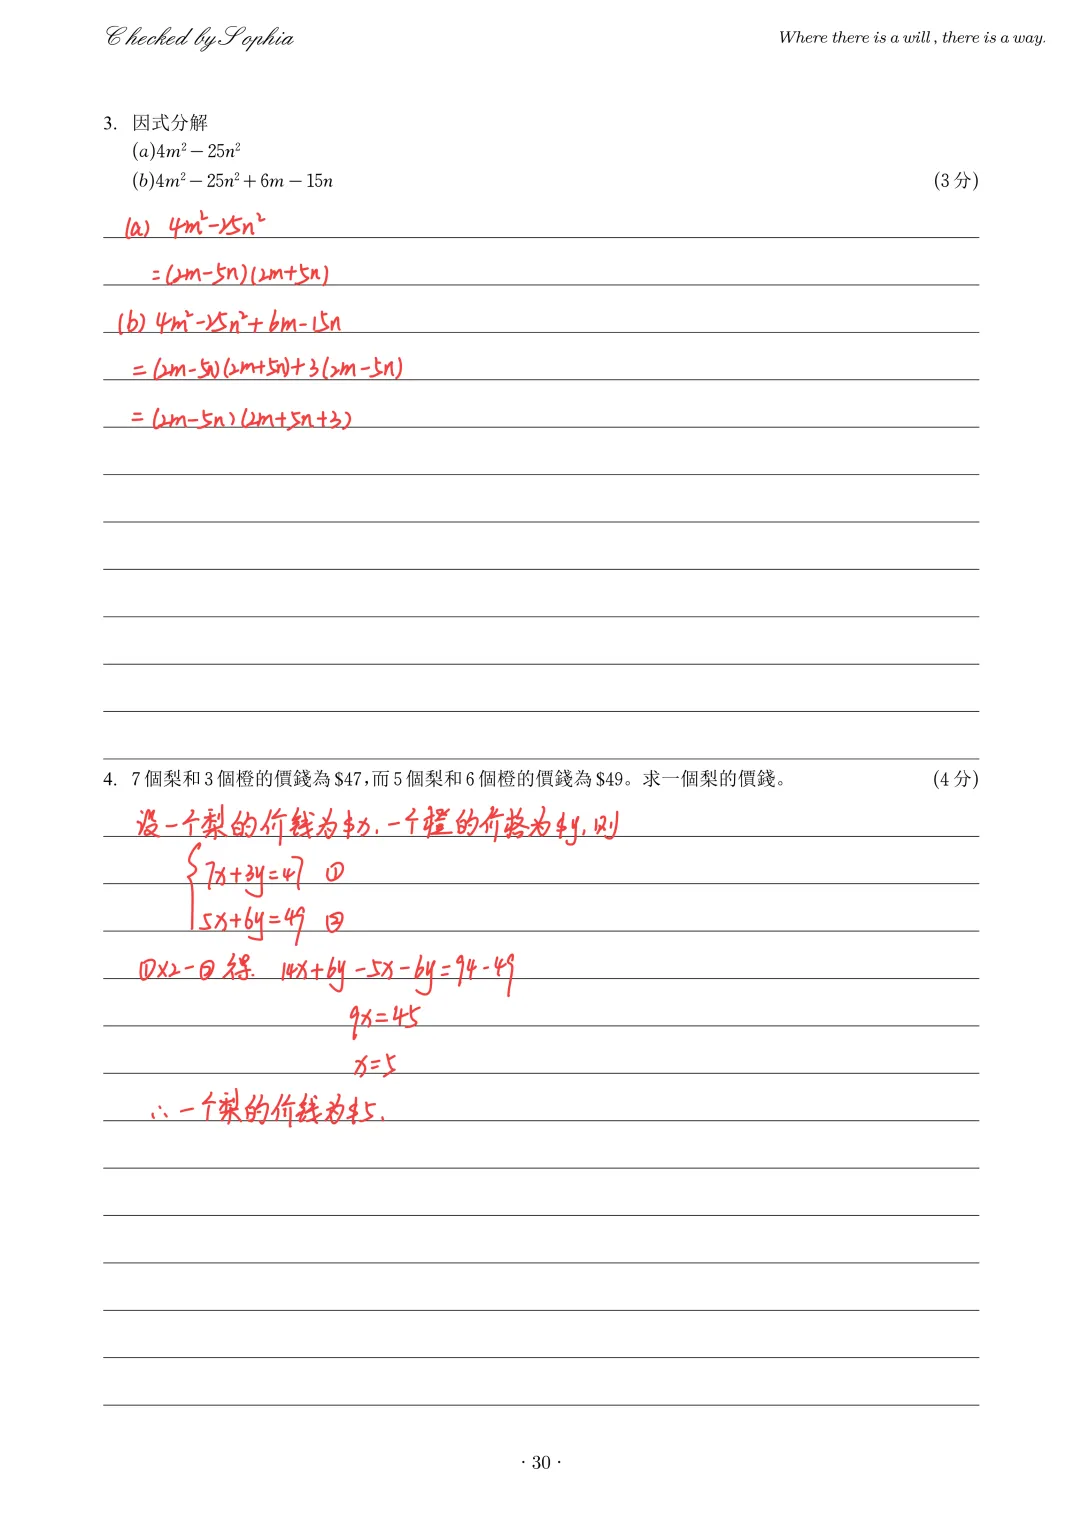 Checked by Sophia
Where there is a will , there is a way.
3. 因式分解
(a)4m² − 25n²
(b)4m² − 25n² + 6m − 15n (3 分)
(a) 4m²-25n²
=(2m-5n)(2m+5n)
(b) 4m²-25n²+6m-15n
=(2m-5n)(2m+5n)+3(2m-5n)
=(2m-5n)(2m+5n+3)
4. 7 個梨和 3 個橙的價錢為 $47,而 5 個梨和 6 個橙的價錢為 $49。求一個梨的價錢。 (4 分)
设一个梨的价钱为$x,一个橙的价格为$y,则
{7x+3y=47 ①
5x+6y=49 ②
①×2-②得. 14x+6y-5x-6y=94-49
9x=45
x=5
∴一个梨的价钱为$5.
· 30 ·